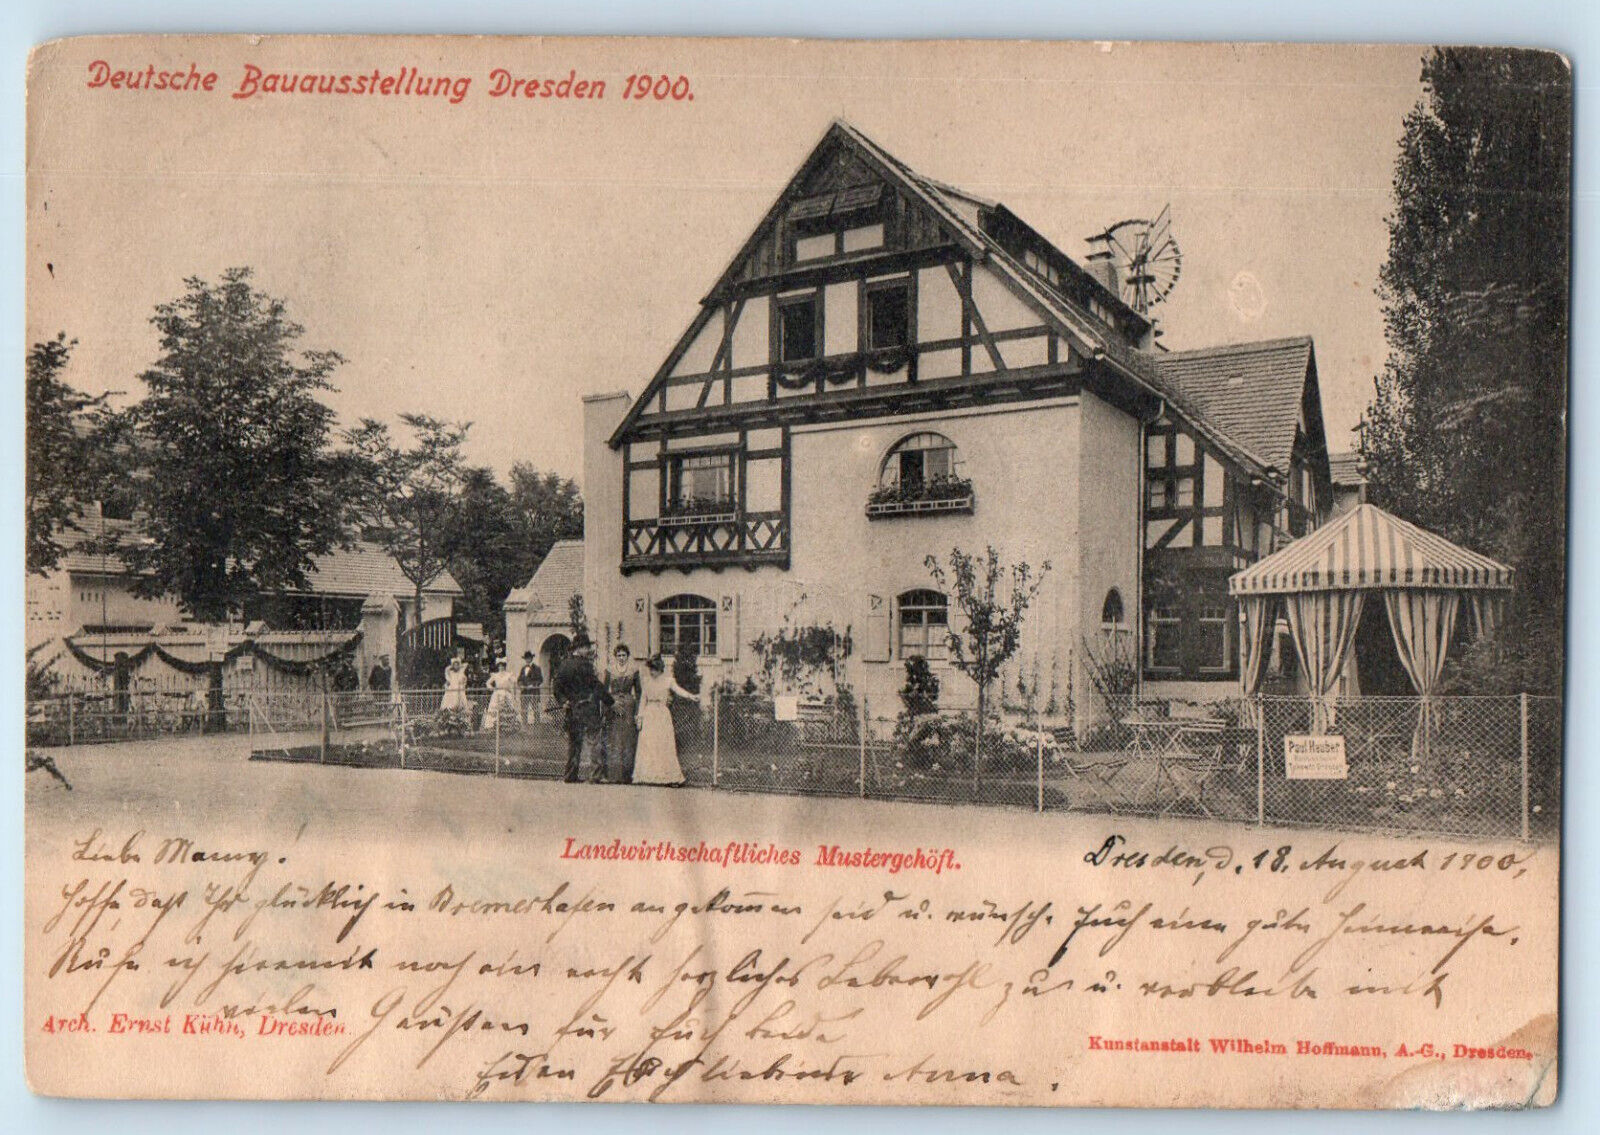 Deutsche Bauausstellung Dresden 1900.
Paul Hauber
Tolkewitz-Dresden
Landwirthschaftliches Mustergehöft.
Liebe Mamy! Dresden, d. 18. August 1900.
Hoffe, daß Ihr glücklich in Bremerhafen angekommen seid u. wünsche Euch eine gute Heimreise.
Rufe ich hiermit noch ein recht herzliches Lebewohl zu u. verbleibe mit
vielen Grüßen für Euch beide
Arch. Ernst Kühn, Dresden.
Kunstanstalt Wilhelm Hoffmann, A.-G., Dresden.
Euch liebende Anna.